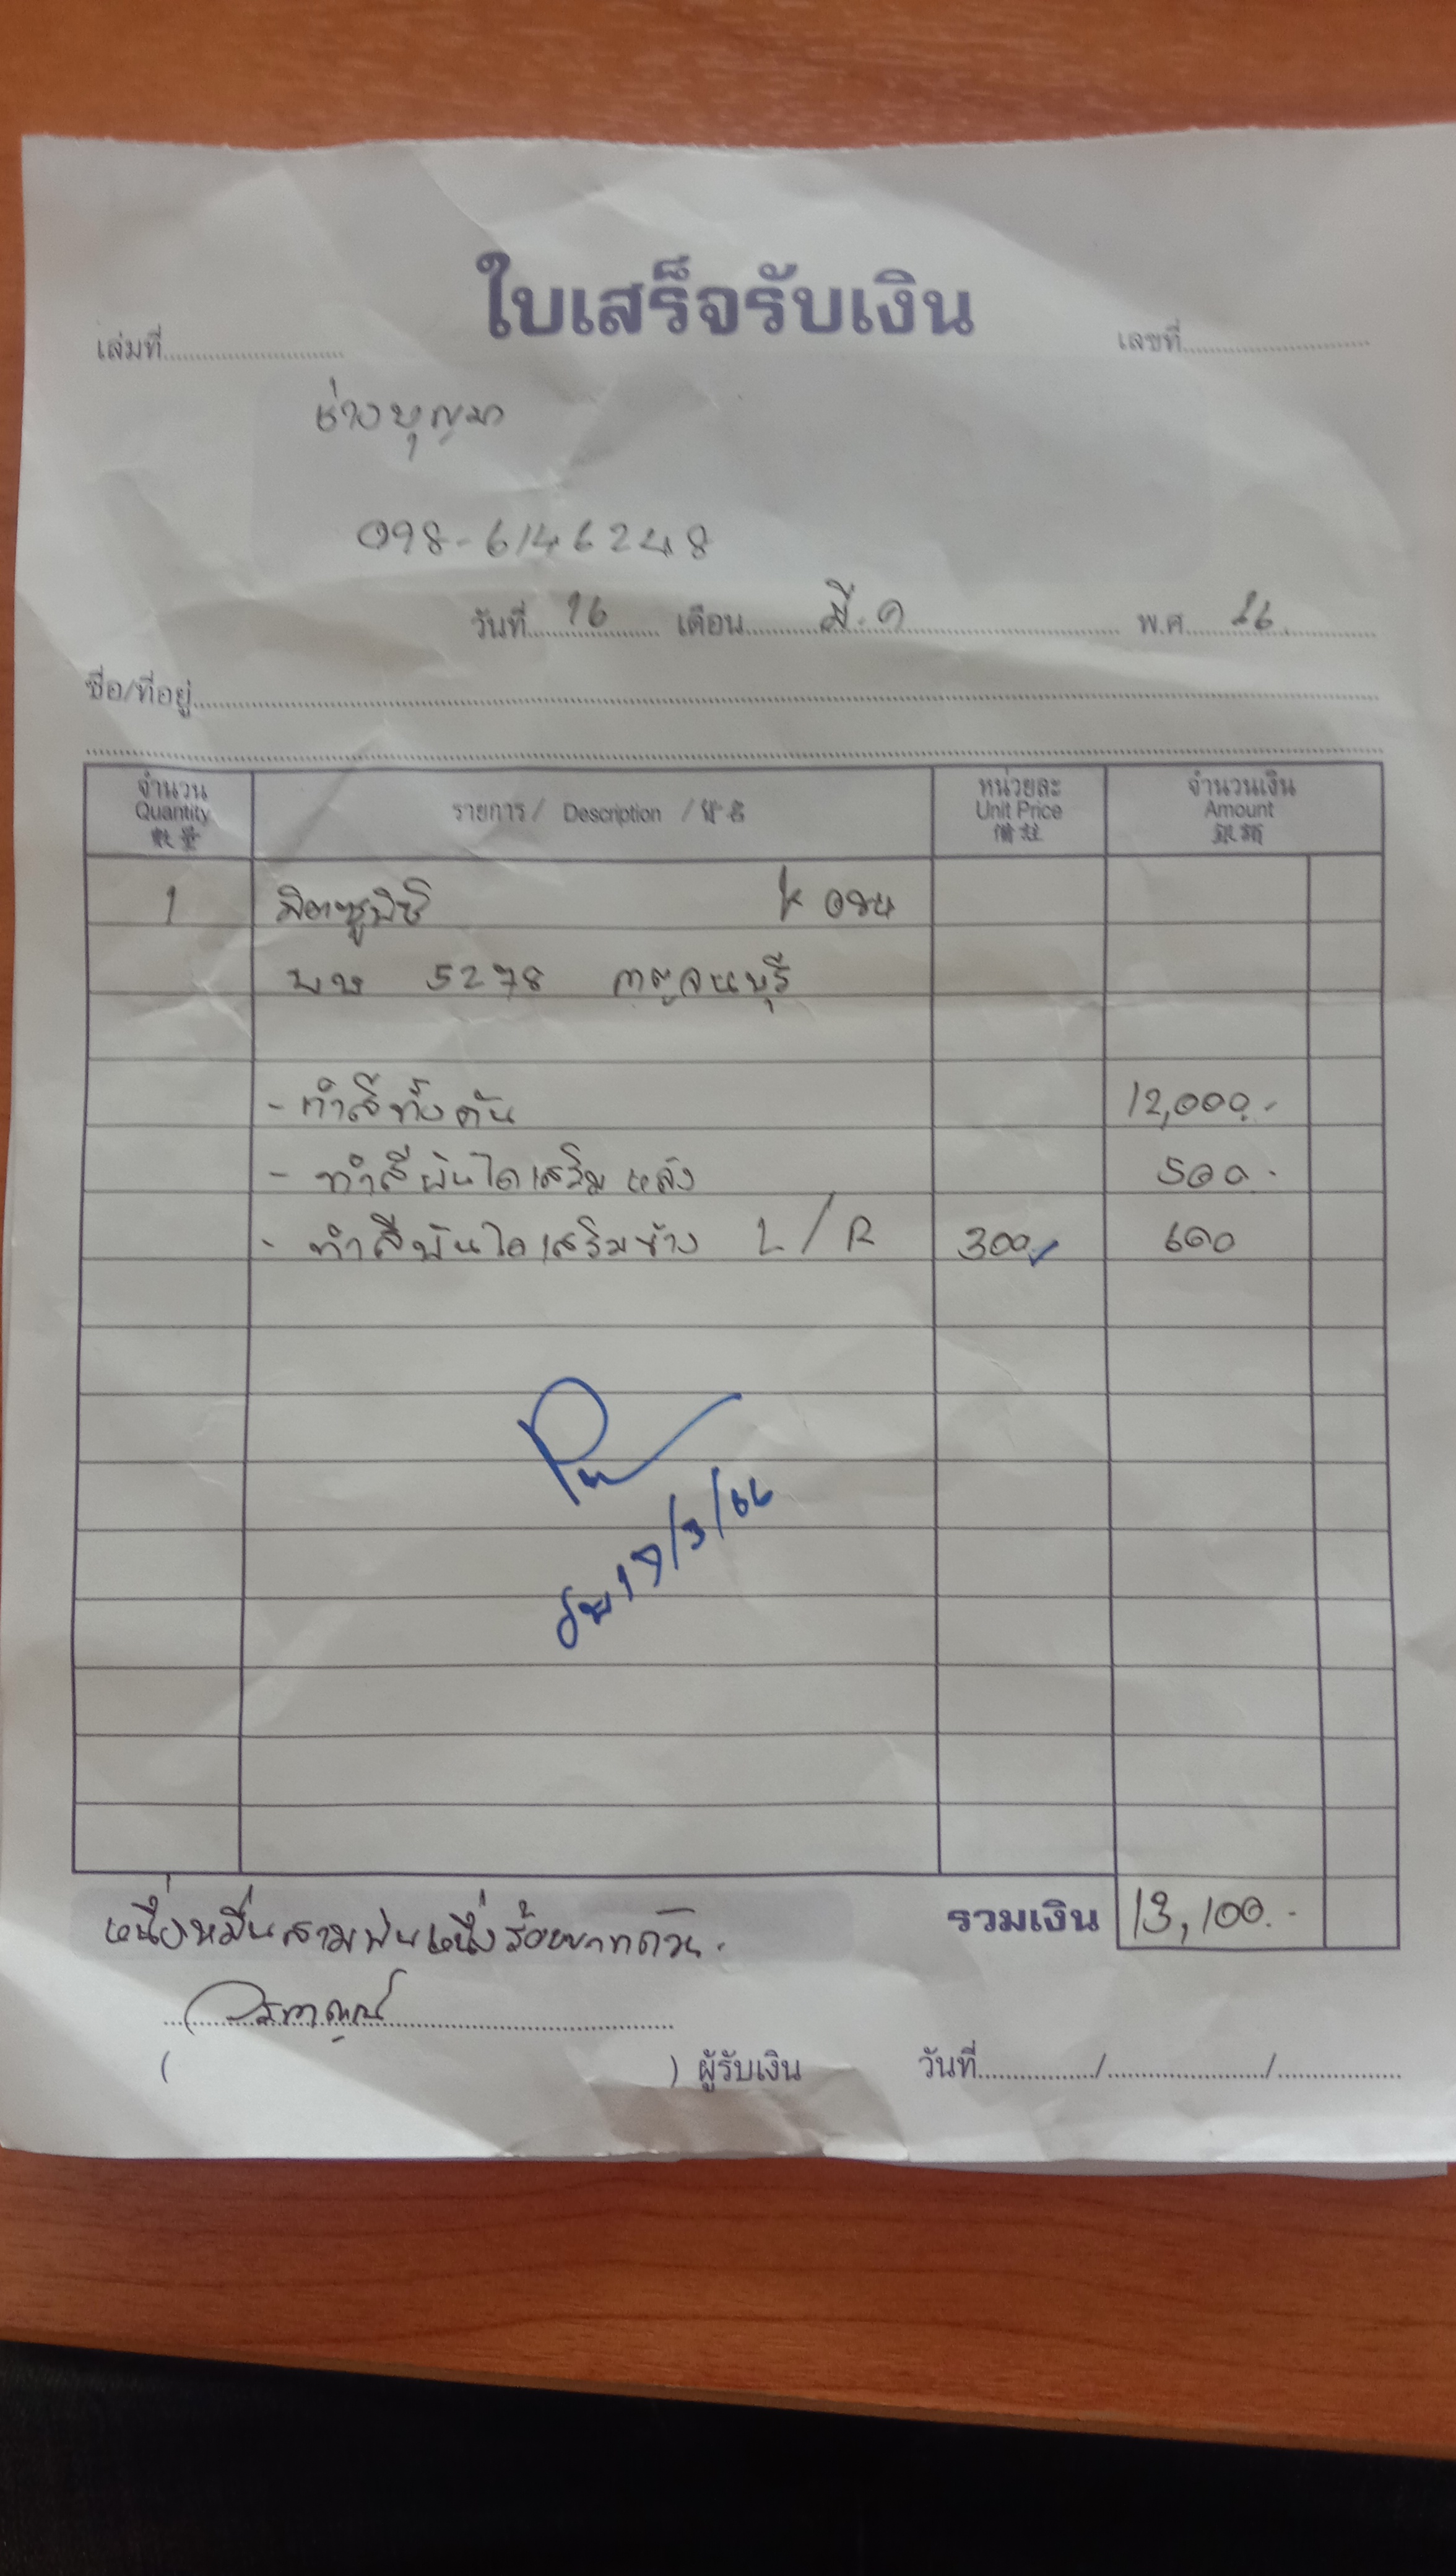 ใบเสร็จรับเงิน
เล่มที่ เลขที่
ช่างบุญมา
098-6146248
วันที่ 16 เดือน มี.ค พ.ศ. 66
ชื่อ/ที่อยู่
จำนวน รายการ / Description / 貨名 หน่วยละ จำนวนเงิน
Quantity Unit Price Amount
數量 備註 銀額
1 มิตซูบิชิ
5278 กาญจนบุรี
- ทำสีทั้งคัน 12,000.-
- ทำสีบันไดเสริม หลัง 500.-
- ทำสีบันไดเสริมข้าง L/R 300 600
17/3/66
หนึ่งหมื่นสามพันหนึ่งร้อยบาทถ้วน. รวมเงิน 13,100.-
( ) ผู้รับเงิน วันที่ / /